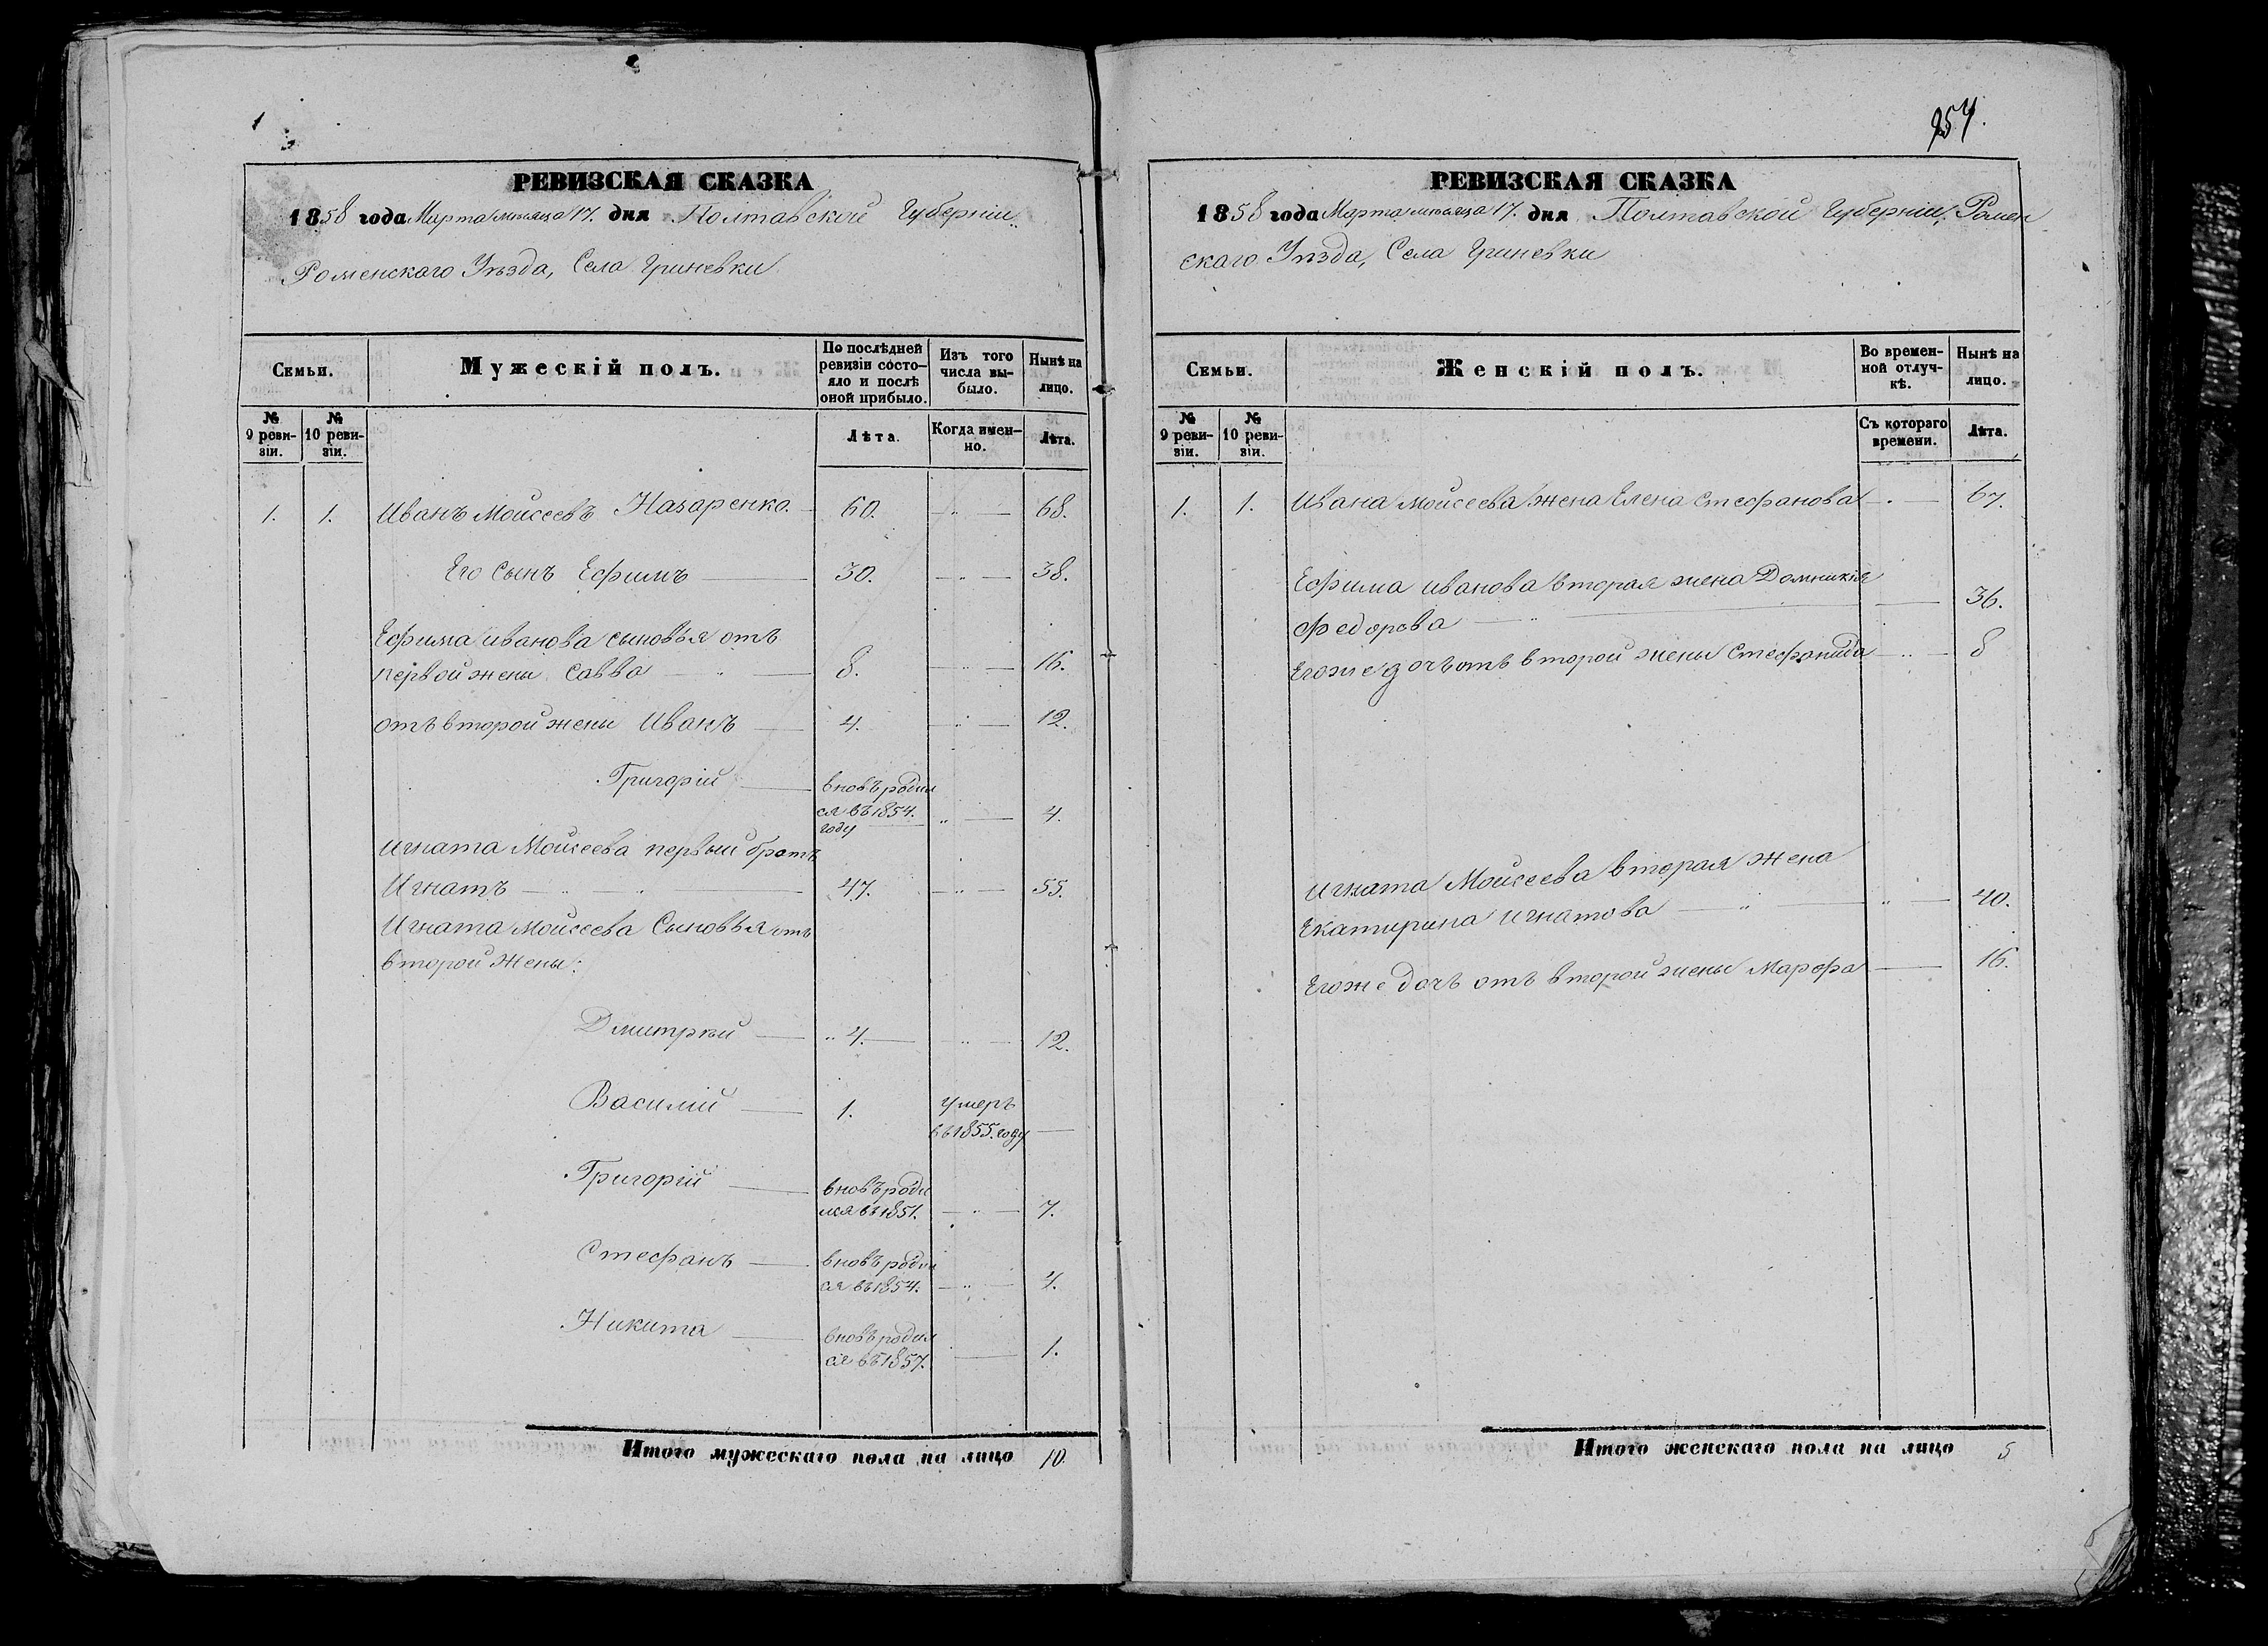 1
РЕВИЗСКАЯ СКАЗКА
1858 года Марта месяца 17. дня Полтавской Губернии
Роменскаго Уѣзда, Села Гриневки
Семьи.
Мужескій полъ.
По послѣдней ревизіи состояло и послѣ оной прибыло.
Изъ того числа выбыло.
Нынѣ на лицо.
№ 9 ревизіи.
№ 10 ревизіи.
Лѣта.
Когда именно.
Лѣта.
1. 1. Иванъ Моисеевъ Назаренко 60. 68.
Его Сынъ Ефимъ 30. 38.
Ефима иванова сыновья отъ
первой жены Савва 8. 16.
отъ второй жены Иванъ 4. 12.
Григорій вновь родил
ся въ 1854. 4.
году
Игната Моисеева первый братъ
Игнатъ 47. 55.
Игната Моисеева Сыновья отъ
второй Жены:
Дмитрій 4. 12.
Василій 1. Умеръ
въ 1855. году
Григорій вновь роди
лся въ 1851. 7.
Стефанъ вновь родил
ся въ 1854. 4.
Никита вновь родил
ся въ 1857. 1.
Итого мужескаго пола на лицо 10.
254.
РЕВИЗСКАЯ СКАЗКА
1858 года Марта месяца 17. дня Полтавской Губерніи, Ромен
скаго Уѣзда, Села Гриневки
Семьи.
Женскій полъ.
Во временной отлучкѣ.
Нынѣ на лицо.
№ 9 ревизіи.
№ 10 ревизіи.
Съ котораго времени.
Лѣта.
1. 1. Ивана Моисеева жена Елена Стефанова 67.
Ефима иванова вторая жена Домникія
Федорова 36.
Егоже дочь отъ второй жены Стефанида 8
Игната Моисеева вторая жена
Екатирина Игнатова 40.
Егоже дочь отъ второй жены Марфа 16.
Итого женскаго пола на лицо 5